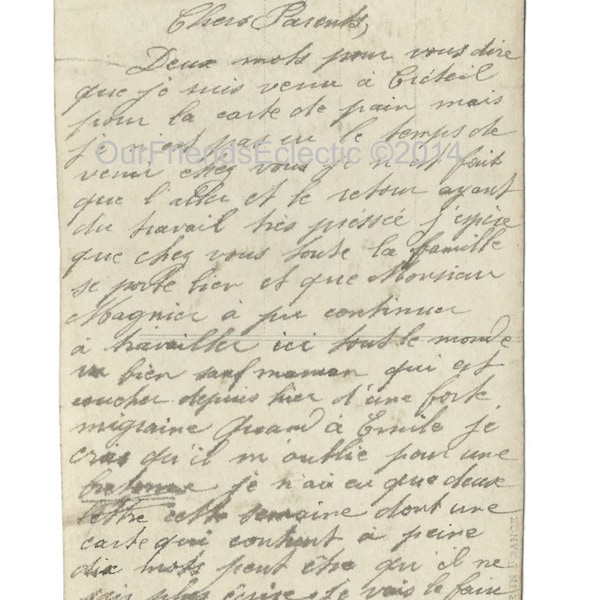 Chers Parents,
Deux mots pour vous dire
que je suis venu à Créteil
pour la carte de pain mais
je n'est pas eu le temps de
OurFriendsEclectic ©2014
venir chez vous je n'est fait
que l'aller et le retour ayant
du travail très pressée j'espère
que chez vous toute la famille
se porte bien et que Monsieur
Magnier à pu continuer
à travailler ici tout le monde
va bien sauf maman qui est
coucher depuis hier d'une forte
migraine Quand à Emile je
crois qu'il m'oublie pour une
bretonne je n'ai eu que deux
lettre cette semaine dont une
carte qui contient à peine
dix mots peut être qu'il ne
sais plus écrire je vais le faire
IN FRANCE